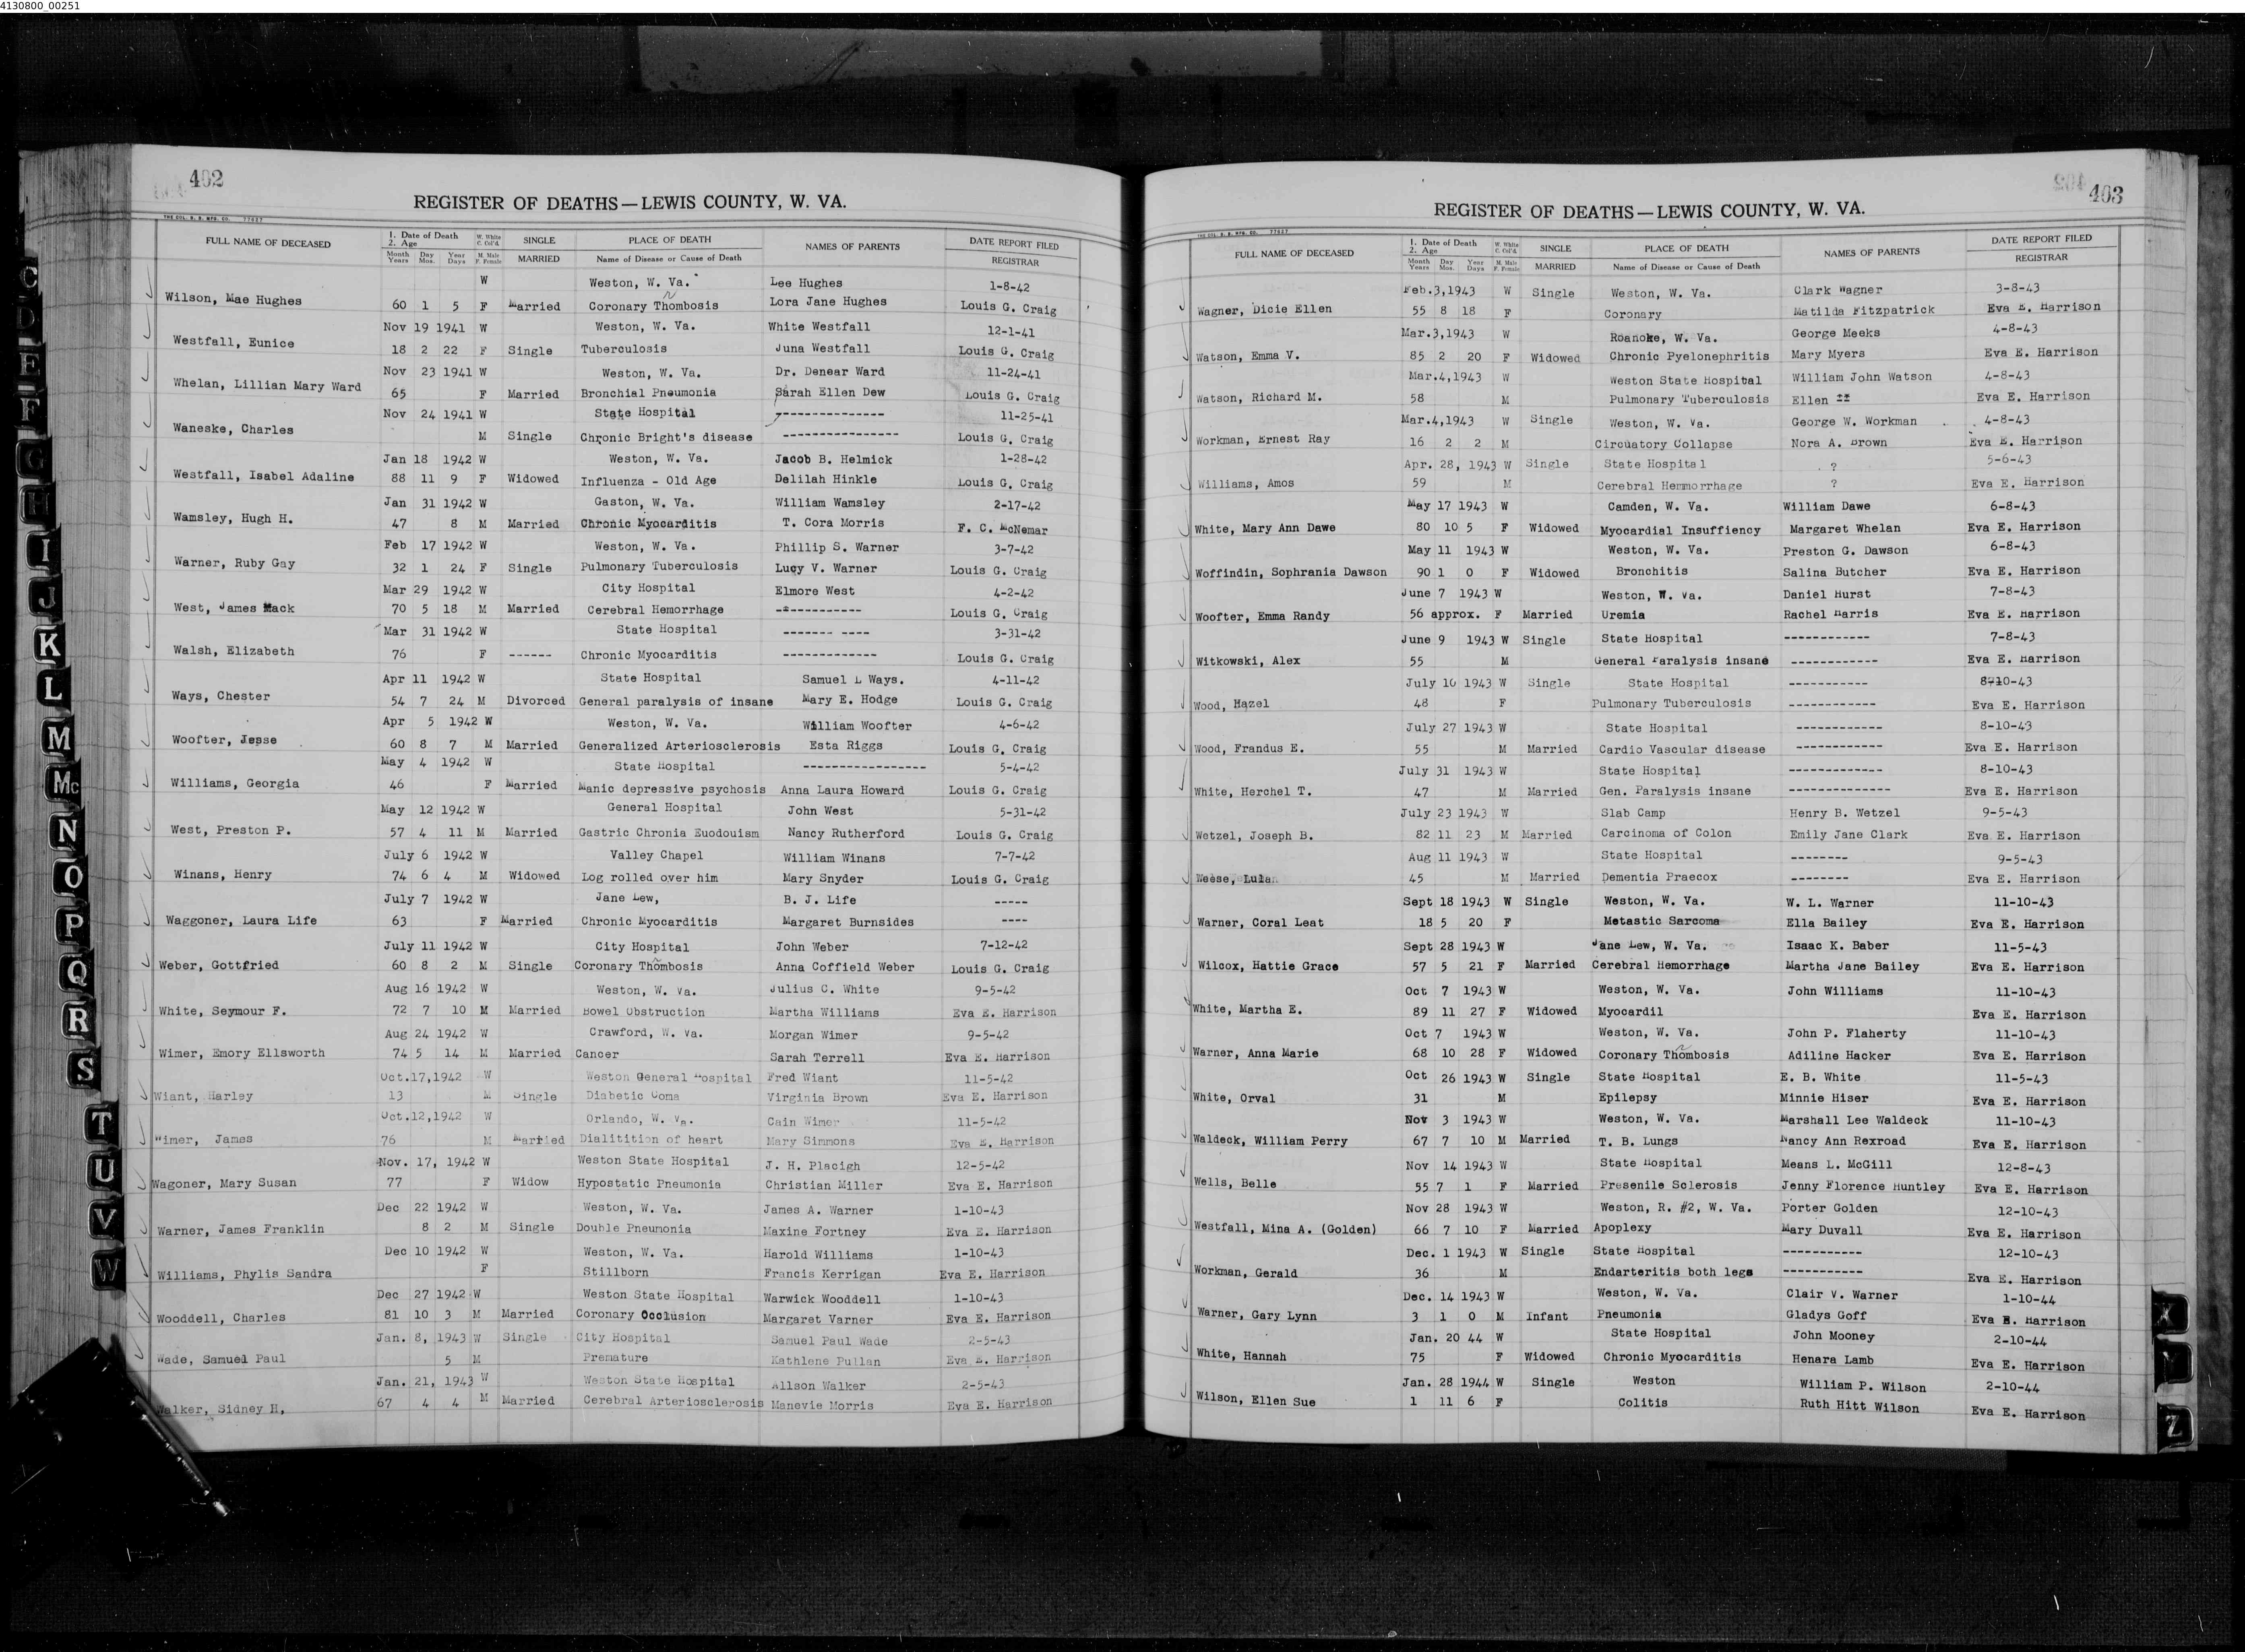 4130800_00251
402
REGISTER OF DEATHS—LEWIS COUNTY, W. VA.
THE COL. B. B. MFG. CO. 77627
FULL NAME OF DECEASED 1. Date of Death 2. Age W. White C. Col'd SINGLE PLACE OF DEATH NAMES OF PARENTS DATE REPORT FILED
Month Years Day Mos. Year Days M. Male F. Female MARRIED Name of Disease or Cause of Death REGISTRAR
W Weston, W. Va. Lee Hughes 1-8-42
Wilson, Mae Hughes 60 1 5 F Married Coronary Thombosis Lora Jane Hughes Louis G. Craig
Nov 19 1941 W Weston, W. Va. White Westfall 12-1-41
Westfall, Eunice 18 2 22 F Single Tuberculosis Juna Westfall Louis G. Craig
Nov 23 1941 W Weston, W. Va. Dr. Denear Ward 11-24-41
Whelan, Lillian Mary Ward 65 F Married Bronchial Pneumonia Sarah Ellen Dew Louis G. Craig
Nov 24 1941 W State Hospital -------------- 11-25-41
Waneske, Charles M Single Chronic Bright's disease ---------------- Louis G. Craig
Jan 18 1942 W Weston, W. Va. Jacob B. Helmick 1-28-42
Westfall, Isabel Adaline 88 11 9 F Widowed Influenza - Old Age Delilah Hinkle Louis G. Craig
Jan 31 1942 W Gaston, W. Va. William Wamsley 2-17-42
Wamsley, Hugh H. 47 8 M Married Chronic Myocarditis T. Cora Morris F. C. McNemar
Feb 17 1942 W Weston, W. Va. Phillip S. Warner 3-7-42
Warner, Ruby Gay 32 1 24 F Single Pulmonary Tuberculosis Lucy V. Warner Louis G. Craig
Mar 29 1942 W City Hospital Elmore West 4-2-42
West, James Mack 70 5 18 M Married Cerebral Hemorrhage ------------ Louis G. Craig
Mar 31 1942 W State Hospital ------- ---- 3-31-42
Walsh, Elizabeth 76 F ------ Chronic Myocarditis ------------- Louis G. Craig
Apr 11 1942 W State Hospital Samuel L Ways. 4-11-42
Ways, Chester 54 7 24 M Divorced General paralysis of insane Mary E. Hodge Louis G. Craig
Apr 5 1942 W Weston, W. Va. William Woofter 4-6-42
Woofter, Jesse 60 8 7 M Married Generalized Arteriosclerosis Esta Riggs Louis G. Craig
May 4 1942 W State Hospital ----------------- 5-4-42
Williams, Georgia 46 F Married Manic depressive psychosis Anna Laura Howard Louis G. Craig
May 12 1942 W General Hospital John West 5-31-42
West, Preston P. 57 4 11 M Married Gastric Chronia Euodouism Nancy Rutherford Louis G. Craig
July 6 1942 W Valley Chapel William Winans 7-7-42
Winans, Henry 74 6 4 M Widowed Log rolled over him Mary Snyder Louis G. Craig
July 7 1942 W Jane Lew, B. J. Life -----
Waggoner, Laura Life 63 F Married Chronic Myocarditis Margaret Burnsides ----
July 11 1942 W City Hospital John Weber 7-12-42
Weber, Gottfried 60 8 2 M Single Coronary Thombosis Anna Coffield Weber Louis G. Craig
Aug 16 1942 W Weston, W. Va. Julius C. White 9-5-42
White, Seymour F. 72 7 10 M Married Bowel Obstruction Martha Williams Eva E. Harrison
Aug 24 1942 W Crawford, W. Va. Morgan Wimer 9-5-42
Wimer, Emory Ellsworth 74 5 14 M Married Cancer Sarah Terrell Eva E. Harrison
Oct.17,1942 W Weston General Hospital Fred Wiant 11-5-42
Wiant, Harley 13 M Single Diabetic Coma Virginia Brown Eva E. Harrison
Oct.12,1942 W Orlando, W. Va. Cain Wimer 11-5-42
Wimer, James 76 M Married Dialitition of heart Mary Simmons Eva E. Harrison
Nov. 17, 1942 W Weston State Hospital J. H. Placigh 12-5-42
Wagoner, Mary Susan 77 F Widow Hypostatic Pneumonia Christian Miller Eva E. Harrison
Dec 22 1942 W Weston, W. Va. James A. Warner 1-10-43
Warner, James Franklin 8 2 M Single Double Pneumonia Maxine Fortney Eva E. Harrison
Dec 10 1942 W Weston, W. Va. Harold Williams 1-10-43
Williams, Phylis Sandra F Stillborn Francis Kerrigan Eva E. Harrison
Dec 27 1942 W Weston State Hospital Warwick Wooddell 1-10-43
Wooddell, Charles 81 10 3 M Married Coronary Occlusion Margaret Varner Eva E. Harrison
Jan. 8, 1943 W Single City Hospital Samuel Paul Wade 2-5-43
Wade, Samuel Paul 5 M Premature Kathlene Pullan Eva E. Harrison
Jan. 21, 1943 W Weston State Hospital Allson Walker 2-5-43
Walker, Sidney H, 67 4 4 M Married Cerebral Arteriosclerosis Manevie Morris Eva E. Harrison
403
REGISTER OF DEATHS—LEWIS COUNTY, W. VA.
THE COL. B. B. MFG. CO. 77627
FULL NAME OF DECEASED 1. Date of Death 2. Age W. White C. Col'd SINGLE PLACE OF DEATH NAMES OF PARENTS DATE REPORT FILED
Month Years Day Mos. Year Days M. Male F. Female MARRIED Name of Disease or Cause of Death REGISTRAR
Feb.3,1943 W Single Weston, W. Va. Clark Wagner 3-8-43
Wagner, Dicie Ellen 55 8 18 F Coronary Matilda Fitzpatrick Eva E. Harrison
Mar.3,1943 W Roanoke, W. Va. George Meeks 4-8-43
Watson, Emma V. 85 2 20 F Widowed Chronic Pyelonephritis Mary Myers Eva E. Harrison
Mar.4,1943 W Weston State Hospital William John Watson 4-8-43
Watson, Richard M. 58 M Pulmonary Tuberculosis Ellen Eva E. Harrison
Mar.4,1943 W Single Weston, W. Va. George W. Workman 4-8-43
Workman, Ernest Ray 16 2 2 M Circuatory Collapse Nora A. Brown Eva E. Harrison
Apr. 28, 1943 W Single State Hospital ? 5-6-43
Williams, Amos 59 M Cerebral Hemmorrhage ? Eva E. Harrison
May 17 1943 W Camden, W. Va. William Dawe 6-8-43
White, Mary Ann Dawe 80 10 5 F Widowed Myocardial Insuffiency Margaret Whelan Eva E. Harrison
May 11 1943 W Weston, W. Va. Preston G. Dawson 6-8-43
Woffindin, Sophrania Dawson 90 1 0 F Widowed Bronchitis Salina Butcher Eva E. Harrison
June 7 1943 W Weston, W. Va. Daniel Hurst 7-8-43
Woofter, Emma Randy 56 approx. F Married Uremia Rachel Harris Eva E. Harrison
June 9 1943 W Single State Hospital ------------ 7-8-43
Witkowski, Alex 55 M General Paralysis insane ------------ Eva E. Harrison
July 10 1943 W Single State Hospital ----------- 8-10-43
Wood, Hazel 48 F Pulmonary Tuberculosis ------------ Eva E. Harrison
July 27 1943 W State Hospital ------------ 8-10-43
Wood, Frandus E. 55 M Married Cardio Vascular disease ------------ Eva E. Harrison
July 31 1943 W State Hospital ------------- 8-10-43
White, Herchel T. 47 M Married Gen. Paralysis insane -------------- Eva E. Harrison
July 23 1943 W Slab Camp Henry B. Wetzel 9-5-43
Wetzel, Joseph B. 82 11 23 M Married Carcinoma of Colon Emily Jane Clark Eva E. Harrison
Aug 11 1943 W State Hospital -------- 9-5-43
Weese, Lula 45 M Married Dementia Praecox -------- Eva E. Harrison
Sept 18 1943 W Single Weston, W. Va. W. L. Warner 11-10-43
Warner, Coral Leat 18 5 20 F Metastic Sarcoma Ella Bailey Eva E. Harrison
Sept 28 1943 W Jane Lew, W. Va. Isaac K. Baber 11-5-43
Wilcox, Hattie Grace 57 5 21 F Married Cerebral Hemorrhage Martha Jane Bailey Eva E. Harrison
Oct 7 1943 W Weston, W. Va. John Williams 11-10-43
White, Martha E. 89 11 27 F Widowed Myocardil Eva E. Harrison
Oct 7 1943 W Weston, W. Va. John P. Flaherty 11-10-43
Warner, Anna Marie 68 10 28 F Widowed Coronary Thombosis Adiline Hacker Eva E. Harrison
Oct 26 1943 W Single State Hospital E. B. White 11-5-43
White, Orval 31 M Epilepsy Minnie Hiser Eva E. Harrison
Nov 3 1943 W Weston, W. Va. Marshall Lee Waldeck 11-10-43
Waldeck, William Perry 67 7 10 M Married T. B. Lungs Nancy Ann Rexroad Eva E. Harrison
Nov 14 1943 W State Hospital Means L. McGill 12-8-43
Wells, Belle 55 7 1 F Married Presenile Sclerosis Jenny Florence Huntley Eva E. Harrison
Nov 28 1943 W Weston, R. #2, W. Va. Porter Golden 12-10-43
Westfall, Mina A. (Golden) 66 7 10 F Married Apoplexy Mary Duvall Eva E. Harrison
Dec. 1 1943 W Single State Hospital ----------- 12-10-43
Workman, Gerald 36 M Endarteritis both legs ----------- Eva E. Harrison
Dec. 14 1943 W Weston, W. Va. Clair V. Warner 1-10-44
Warner, Gary Lynn 3 1 0 M Infant Pneumonia Gladys Goff Eva E. Harrison
Jan. 20 44 W State Hospital John Mooney 2-10-44
White, Hannah 75 F Widowed Chronic Myocarditis Henara Lamb Eva E. Harrison
Jan. 28 1944 W Single Weston William P. Wilson 2-10-44
Wilson, Ellen Sue 1 11 6 F Colitis Ruth Hitt Wilson Eva E. Harrison
C
D
E
F
G
H
I
J
K
L
M
Mc
N
O
P
Q
R
S
T
U
V
W
X
Y
Z